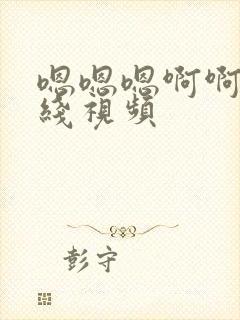 嗯嗯嗯啊啊
綫視頻
彭守